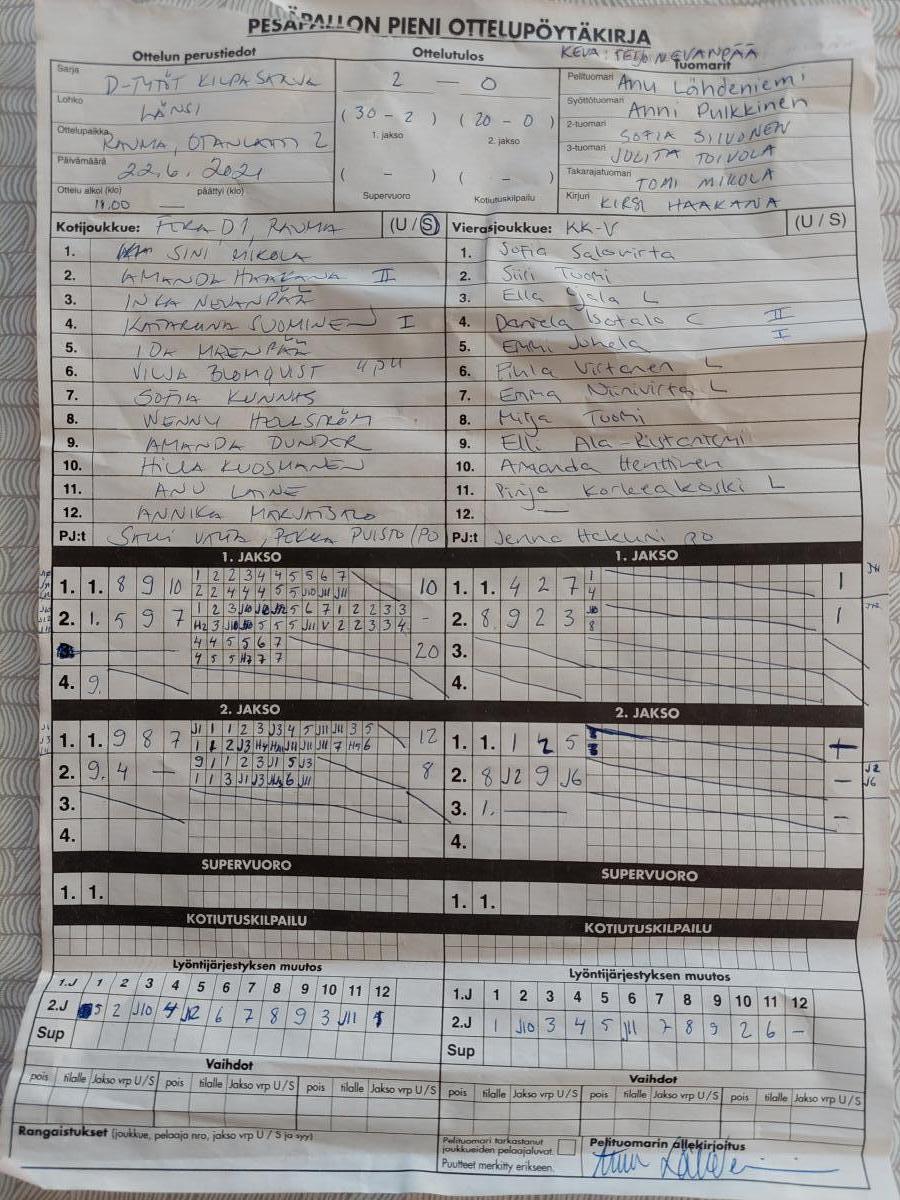 PESÄPALLON PIENI OTTELUPÖYTÄKIRJA
Ottelun perustiedot
Sarja D-TYTÖT KILPASARJA
Lohko LÄNSI
Ottelupaikka RAUMA, OTANLAHTI 2
Päivämäärä 22.6.2021
Ottelu alkoi (klo) päättyi (klo)
18.00 —
Ottelutulos
2 — 0
(30 - 2) (20 - 0)
1. jakso 2. jakso
( - ) ( - )
Supervuoro Kotiutuskilpailu
KEVA: TEIJO NEVANPÄÄ
Tuomarit
Pelituomari Anu Lähdeniemi
Syöttötuomari Anni Pulkkinen
2-tuomari SOFIA SILVONEN
3-tuomari JULITA TOIVOLA
Takarajatuomari TOMI MIKOLA
Kirjuri KIRSI HAAKANA
Kotijoukkue: FERA D1, RAUMA (U / S)
1. SINI MIKOLA
2. AMANDA HAAKANA II
3. INKA NEVANPÄÄ
4. KATARIINA SUOMINEN I
5. IDA MÄENPÄÄ
6. VILJA BLOMQVIST
7. SOFIA KUNNAS
8. WENNI HELLSTRÖM
9. AMANDA DUNDER
10. HILLA KUOSMANEN
11. ANU LAINE
12. ANNIKA
PJ:t PEKKA PUISTO (PO
Vierasjoukkue: KK-V (U / S)
1. Sofia Salovirta
2. Siiri Tuomi
3. Ella L
4. Daniela Isotalo C II
5. EMMI Juhela I
6. Pihla Virtanen L
7. Emma Niinivirta L
8. Milja Tuomi
9. Elli Ala-Ristaniemi
10. Amanda Henttinen
11. Pinja Korkeakoski L
12. —
PJ:t Jenna Hakuni PO
1. JAKSO
1. 1. 8 9 10 1 2 2 3 4 4 5 5 6 7 10
2 2 4 4 4 5 5 J10 J11 J11
2. 1. 5 9 7 -
4 4 5 5 6 7
4 5 5 H7 7 7 20
4. 9.
1. JAKSO
1. 1. 4 2 7 1 1
4
2. 8. 9 2 3 J10 1
8
3.
4.
2. JAKSO
1. 1. 9 8 7 J1 1 1 2 3 J3 4 5 J11 J11 3 5 12
2. 9. 4 — 9 1 1 2 3 J1 5 J3 8
1 1 3 J1 J3 6 J11
3.
4.
2. JAKSO
1. 1. 1 2 5
2. 8 J2 9 J6 -
3. 1. — -
4.
SUPERVUORO
1. 1.
SUPERVUORO
1. 1.
KOTIUTUSKILPAILU
KOTIUTUSKILPAILU
Lyöntijärjestyksen muutos
1.J 1 2 3 4 5 6 7 8 9 10 11 12
2.J 5 2 J10 4 J12 6 7 8 9 3 J11 1
Sup
Lyöntijärjestyksen muutos
1.J 1 2 3 4 5 6 7 8 9 10 11 12
2.J 1 J10 3 4 5 J11 7 8 9 2 6 -
Sup
Vaihdot
pois tilalle Jakso vrp U/S pois tilalle Jakso vrp U/S pois tilalle Jakso vrp U/S
Vaihdot
pois tilalle Jakso vrp U/S pois tilalle Jakso vrp U/S pois tilalle Jakso vrp U/S
Rangaistukset (joukkue, pelaaja nro, jakso vrp U / S ja syy)
Pelituomari tarkastanut joukkueiden pelaajaluvat.
Puutteet merkitty erikseen.
Pelituomarin allekirjoitus